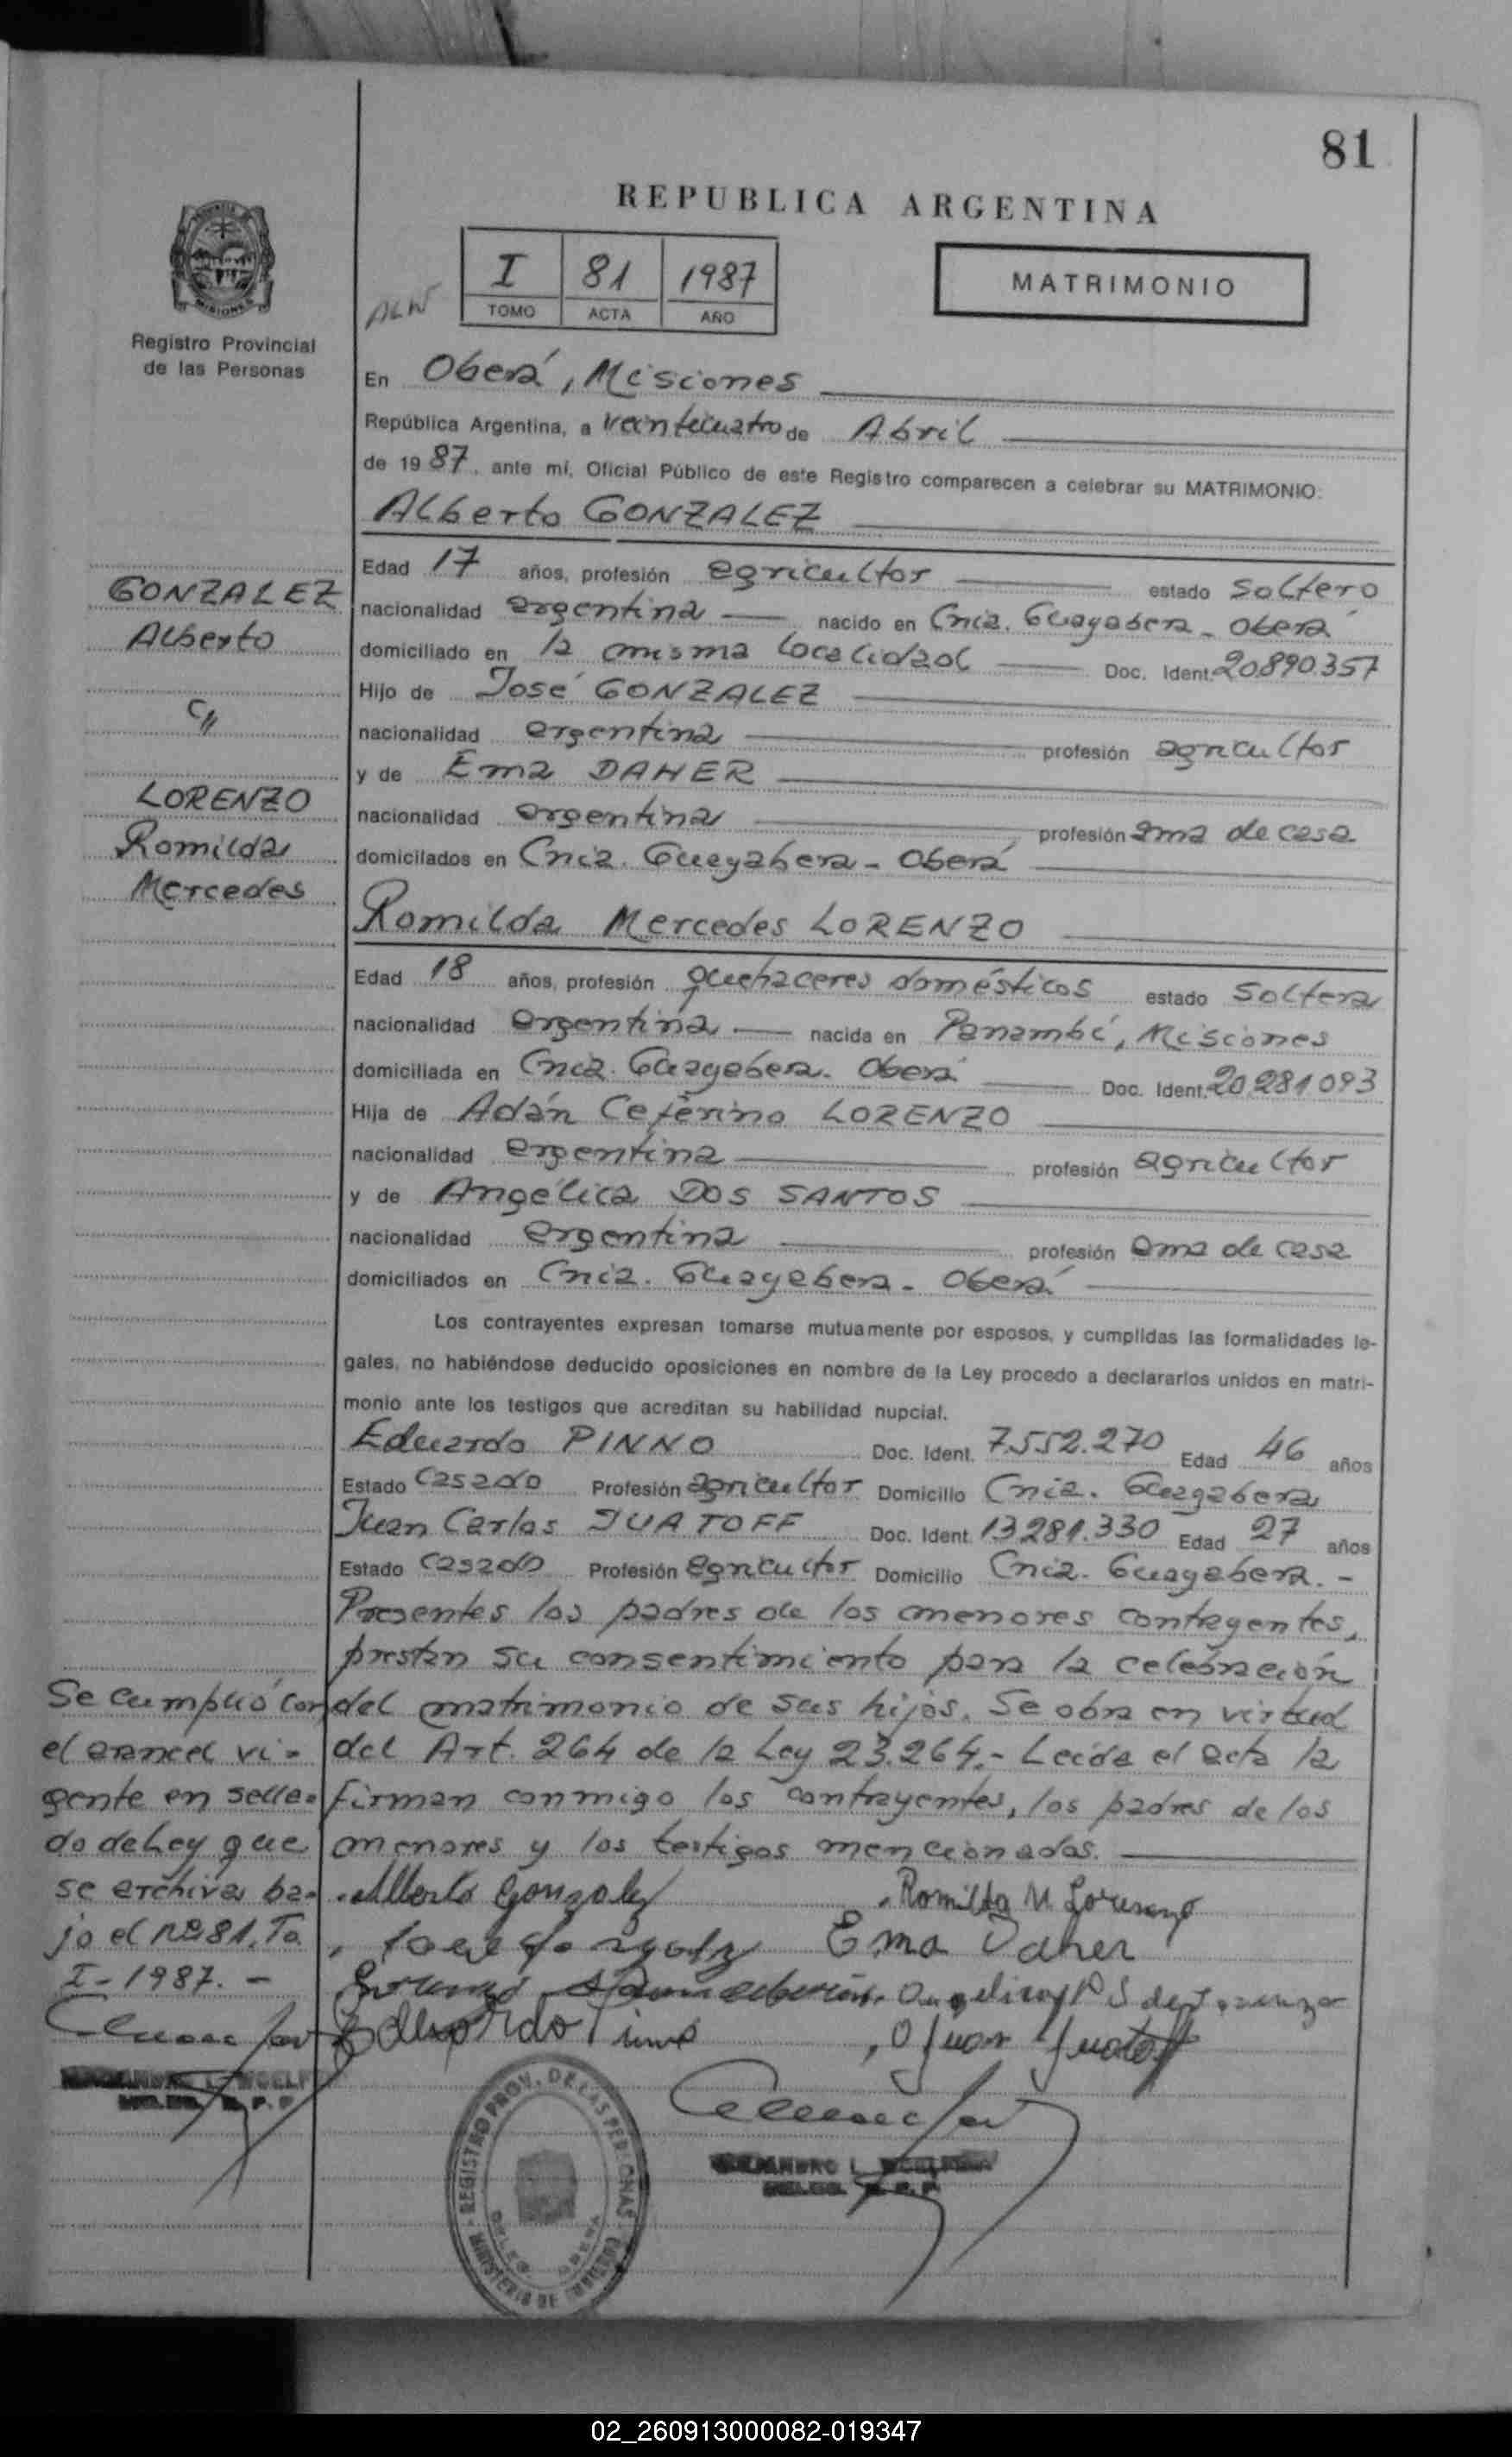 81
REPUBLICA ARGENTINA
I 81 1987
TOMO ACTA AÑO
MATRIMONIO
MISIONES
Registro Provincial
de las Personas
En Oberá, Misiones
República Argentina, a veinticuatro de Abril
de 1987, ante mí, Oficial Público de este Registro comparecen a celebrar su MATRIMONIO:
Alberto GONZALEZ
Edad 17 años, profesión agricultor estado soltero
nacionalidad argentina nacido en Cnia. Guayabera - Oberá
domiciliado en la misma localidad Doc. Ident. 20.890.357
Hijo de José GONZALEZ
nacionalidad argentina profesión agricultor
y de Ema DAHER
nacionalidad argentina profesión ama de casa
domicilados en Cnia. Guayabera - Oberá
GONZALEZ
Alberto
c//
LORENZO
Romilda
Mercedes
Romilda Mercedes LORENZO
Edad 18 años, profesión quehaceres domésticos estado soltera
nacionalidad argentina nacida en Panambí, Misiones
domiciliada en Cnia. Guayabera - Oberá Doc. Ident. 20.281.093
Hija de Adán Ceferino LORENZO
nacionalidad argentina profesión agricultor
y de Angélica DOS SANTOS
nacionalidad argentina profesión ama de casa
domiciliados en Cnia. Guayabera - Oberá
Los contrayentes expresan tomarse mutuamente por esposos, y cumplidas las formalidades le-
gales, no habiéndose deducido oposiciones en nombre de la Ley procedo a declararlos unidos en matri-
monio ante los testigos que acreditan su habilidad nupcial.
Eduardo PINNO Doc. Ident. 7.552.270 Edad 46 años
Estado casado Profesión agricultor Domicilio Cnia. Guayabera
Juan Carlos JUATOFF Doc. Ident. 13.281.330 Edad 27 años
Estado casado Profesión agricultor Domicilio Cnia. Guayabera. -
Presentes los padres de los menores contrayentes,
prestan su consentimiento para la celebración
del matrimonio de sus hijos. Se obra en virtud
del Art. 264 de la Ley 23.264.- Leída el acta la
firman conmigo los contrayentes, los padres de los
menores y los testigos mencionados.
Se cumplió con
el arancel vi-
gente en sella-
do de Ley que
se archiva ba-
jo el nº 81, To.
I - 1987. -
Alberto Gonzalez
Romilda M. Lorenzo
Ema Daher
Juan Juatoff
REGISTRO PROV. DE LAS PERSONAS
MINISTERIO DE GOBIERNO
02_260913000082-019347